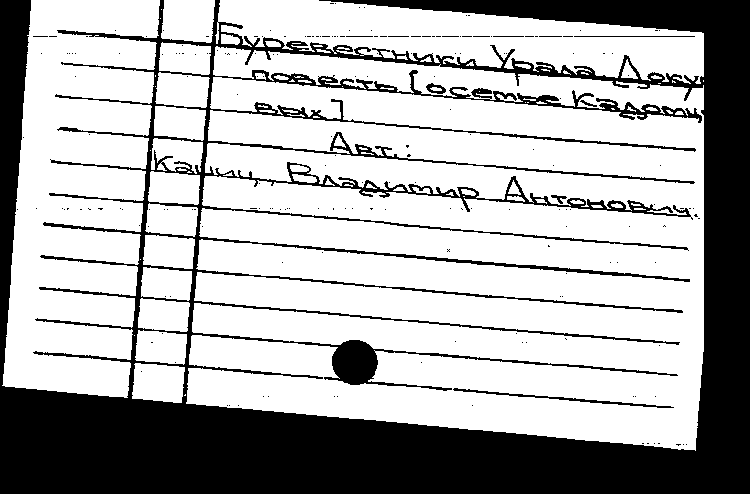 Буревестники Урала Доку
повесть [осетье Кадомц
вых].
Авт.:
Каниц, Владимир Антонович.